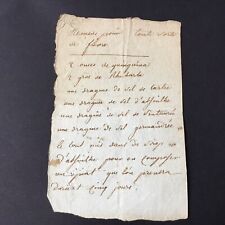 Remede pour toute sorte
de fievre
2 onces de quinquina
2 gros de Rhubarbe
une dragme de sel de tartre
une dragme de sel d'absinthe
une dragme de sel de Centaurée
une dragme de sel germandrée
le tout mis dans du sirop
d'absinthe pour en composer
une opiat que l'on prendra
durant cinq jours.